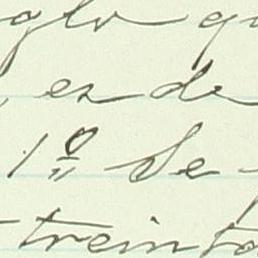 glo qu
, es de
1º Se
treinta